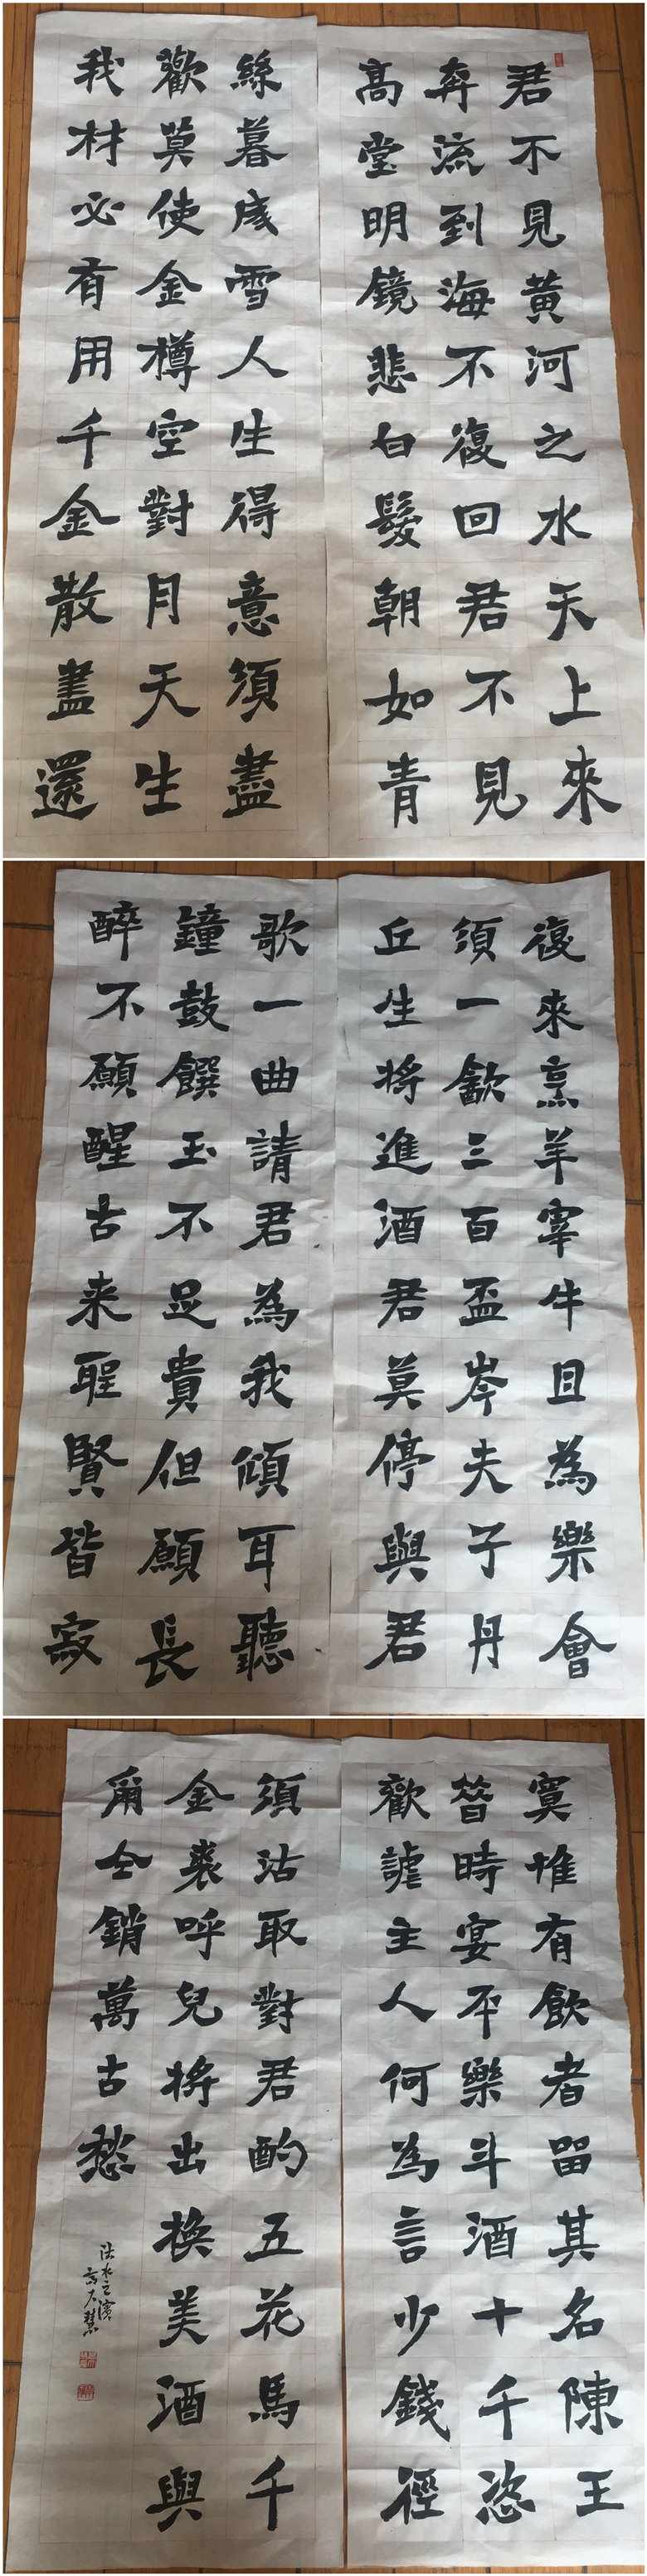 君不見黃河之水天上來
奔流到海不復回君不見
高堂明鏡悲白髮朝如青
絲暮成雪人生得意須盡
歡莫使金樽空對月天生
我材必有用千金散盡還
復來烹羊宰牛且為樂會
須一飲三百盃岑夫子丹
丘生將進酒君莫停與君
歌一曲請君為我傾耳聽
鐘鼓饌玉不足貴但願長
醉不願醒古来聖賢皆寂
寞惟有飲者留其名陳王
昔時宴平樂斗酒十千恣
歡謔主人何為言少錢徑
須沽取對君酌五花馬千
金裘呼兒將出換美酒與
爾仝銷萬古愁
水之濱